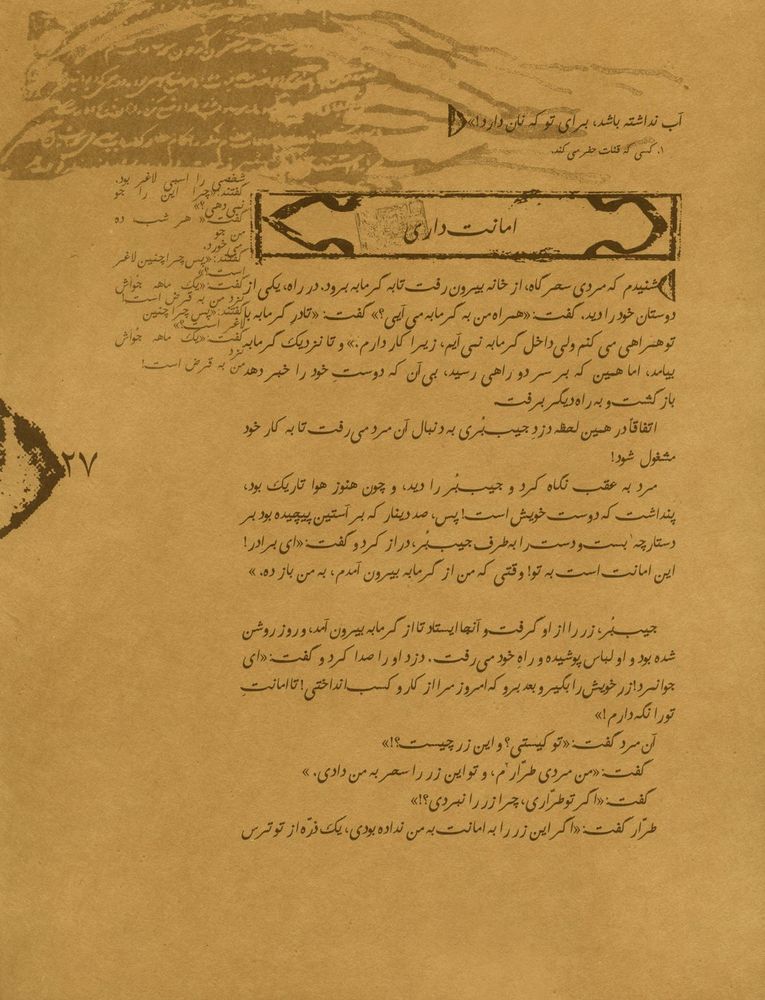 آب نداشته باشد، برای تو که نان دارد!»
۱. کسی که قنات حفر می‌کند.
امانت‌داری
شنیدم که مردی سحرگاه، از خانه بیرون رفت تا به گرمابه برود. در راه، یکی از
دوستان خود را دید. گفت: «همراه من به گرمابه می‌آیی؟» گفت: «تا در گرمابه با
تو همراهی می‌کنم ولی داخل گرمابه نمی‌آیم، زیرا کار دارم.» و تا نزدیک گرمابه
بیامد، اما همین که بر سر دو راهی رسید، بی‌آن که دوستِ خود را خبر دهد
بازگشت و به راه دیگر برفت.
اتفاقاً در همین لحظه دزد جیب‌بُری به دنبال آن مرد می‌رفت تا به کار خود
مشغول شود!
مرد به عقب نگاه کرد و جیب‌بُر را دید، و چون هنوز هوا تاریک بود،
پنداشت که دوست خویش است! پس، صد دینار که بر آستین پیچیده بود بر
دستارچه' بست و دست را به‌طرف جیب‌بُر، دراز کرد و گفت: «ای برادر!
این امانت است به تو! وقتی که من از گرمابه بیرون آمدم، به من باز ده.»
جیب‌بُر، زر را از او گرفت و آنجا ایستاد تا از گرمابه بیرون آمد، و روز روشن
شده بود و او لباس پوشیده و راهِ خود می‌رفت. دزد او را صدا کرد و گفت: «ای
جوانمرد! زر خویش را بگیر و بعد برو که امروز مرا از کار و کسب انداختی! تا امانتِ
تو را نگه دارم!»
آن مرد گفت: «تو کیستی؟ و این زر چیست؟!»
گفت: «من مردی طرّار'م، و تو این زر را سحر به من دادی.»
گفت: «اگر تو طرّاری، چرا زر را نبردی؟!»
طرّار گفت: «اگر این زر را به امانت به من نداده بودی، یک ذرّه از تو ترس
شخصی را اسبی لاغر بود.
گفتند: «چرا این را جو
نمی‌دهی؟»
گفت: «هر شب ده
من جو
می‌خورد.
گفتند: «پس چرا چنین لاغر
است؟»
گفت: «یک ماهه جُواش
نزد من به قرض است!
گفتند: «پس چرا چنین
لاغر است؟»
گفت: «یک ماهه جُواش
نزد
من به قرض است!
۲۷